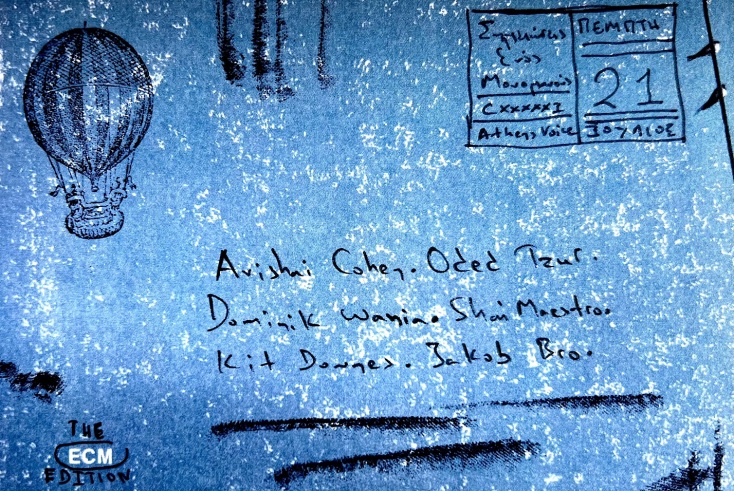 Σημειώσεις
Ενός
Μονομανούς
CXXXXXI
Athens Voice
ΠΕΜΠΤΗ
21
ΙΟΥΛΙΟΣ
Avishai Cohen. Oded Tzur.
Dominik Wania. Shai Maestro.
Kit Downes. Jakob Bro.
THE
ECM
EDITION